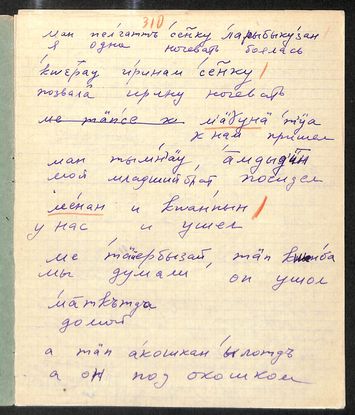 310
ман пелгаттъ се̄нку ларыбыкузан
я одна ночевать боялась
квте̄рау иринам се̄нку
позвала ирину ночевать
ме тäп'се к м'äɣунä тӱа
к нам пришел
ман тымн'ау āмдыдӓн
мой младший брат посидел
ме́нан и кwан́нын
у нас и ушел
ме тäɛрбызай, тäп
мы думали, он ушол
мäткътда
домой
а тäп акошкан ылотдъ
а он под окошком